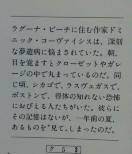 ラグーナ・ビーチに住む作家ドミ
ニック・コーヴァイシスは、深刻
な夢遊病に悩まされていた。朝、
目を覚ますとクローゼットやガレ
ージの中で丸まっているのだ。同
じ頃、シカゴで、ラスヴェガスで、
ボストンで、得体の知れない恐怖
におびえる人たちがいた。彼らに
その記憶はないが、一年前の夏、
あるものを「見て」しまったのだ。